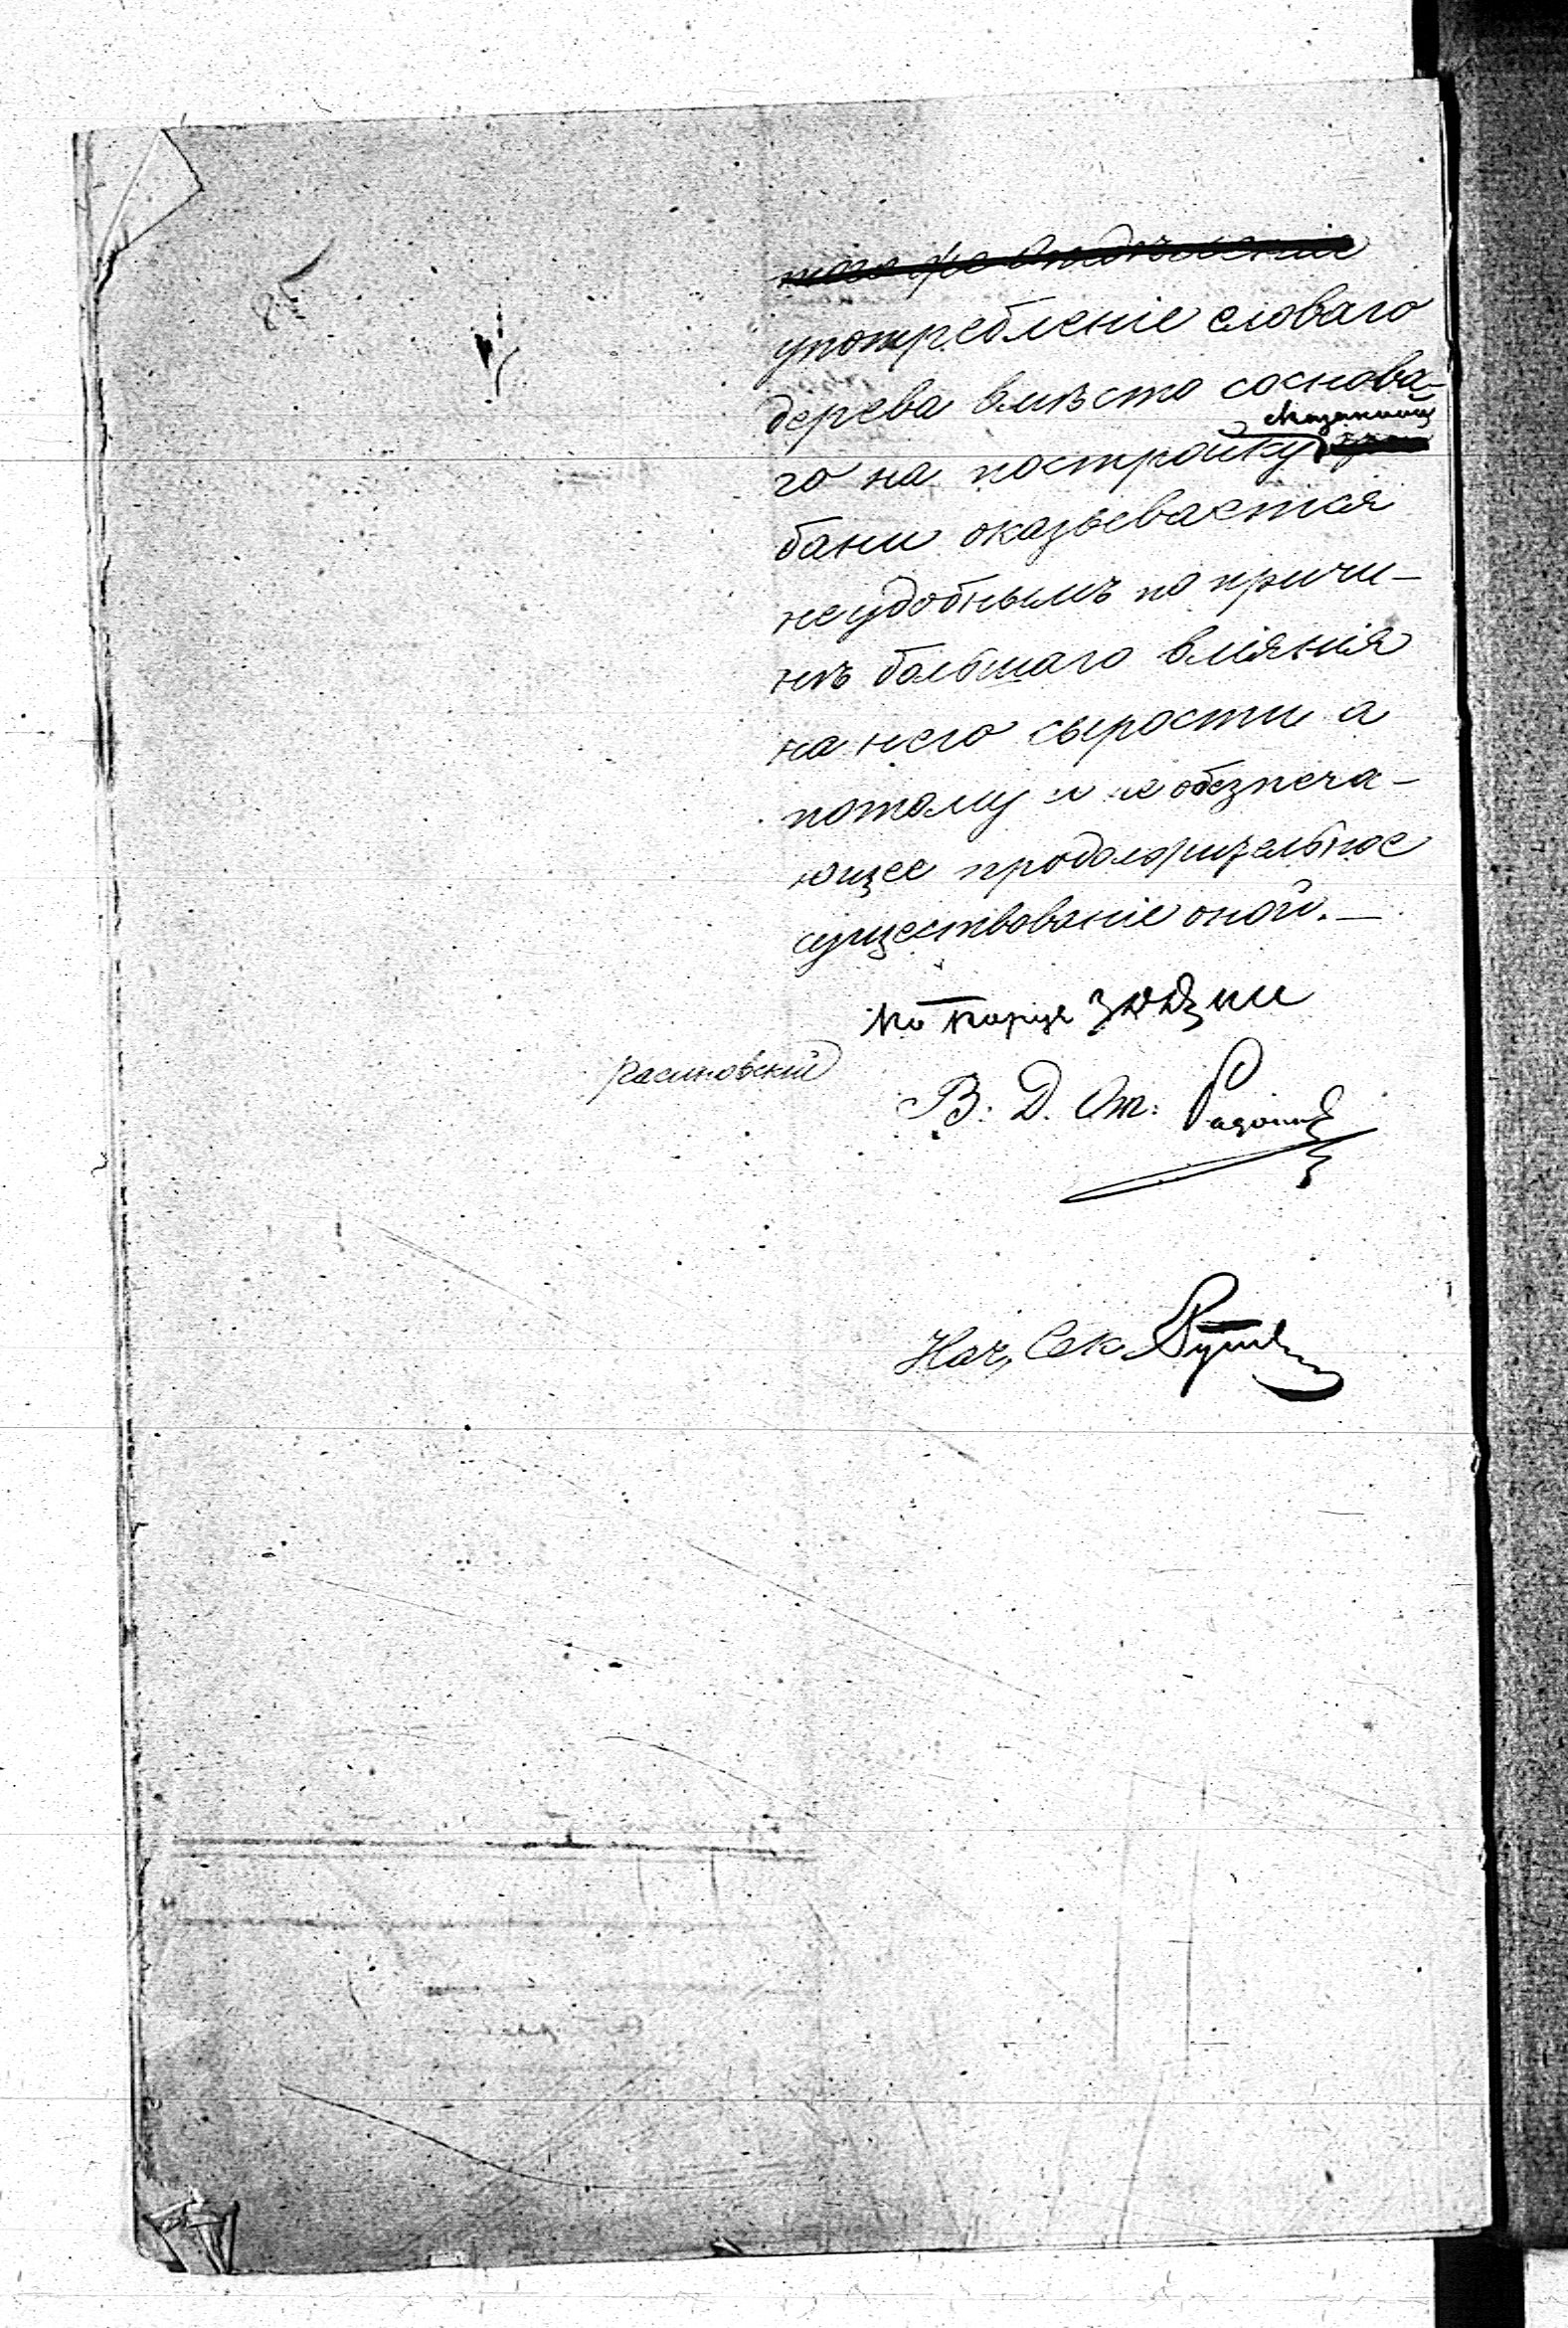 того же
употребленіе еловаго
дерева вмѣсто соснова-
го на постройку сказанной
бани оказывается
неудобнымъ по причи-
нѣ большаго вліянія
на него сырости а
потому и не обезпеча-
ющее продолжительное
существованіе оной.—
В. Д. От:
Нач. Сек.